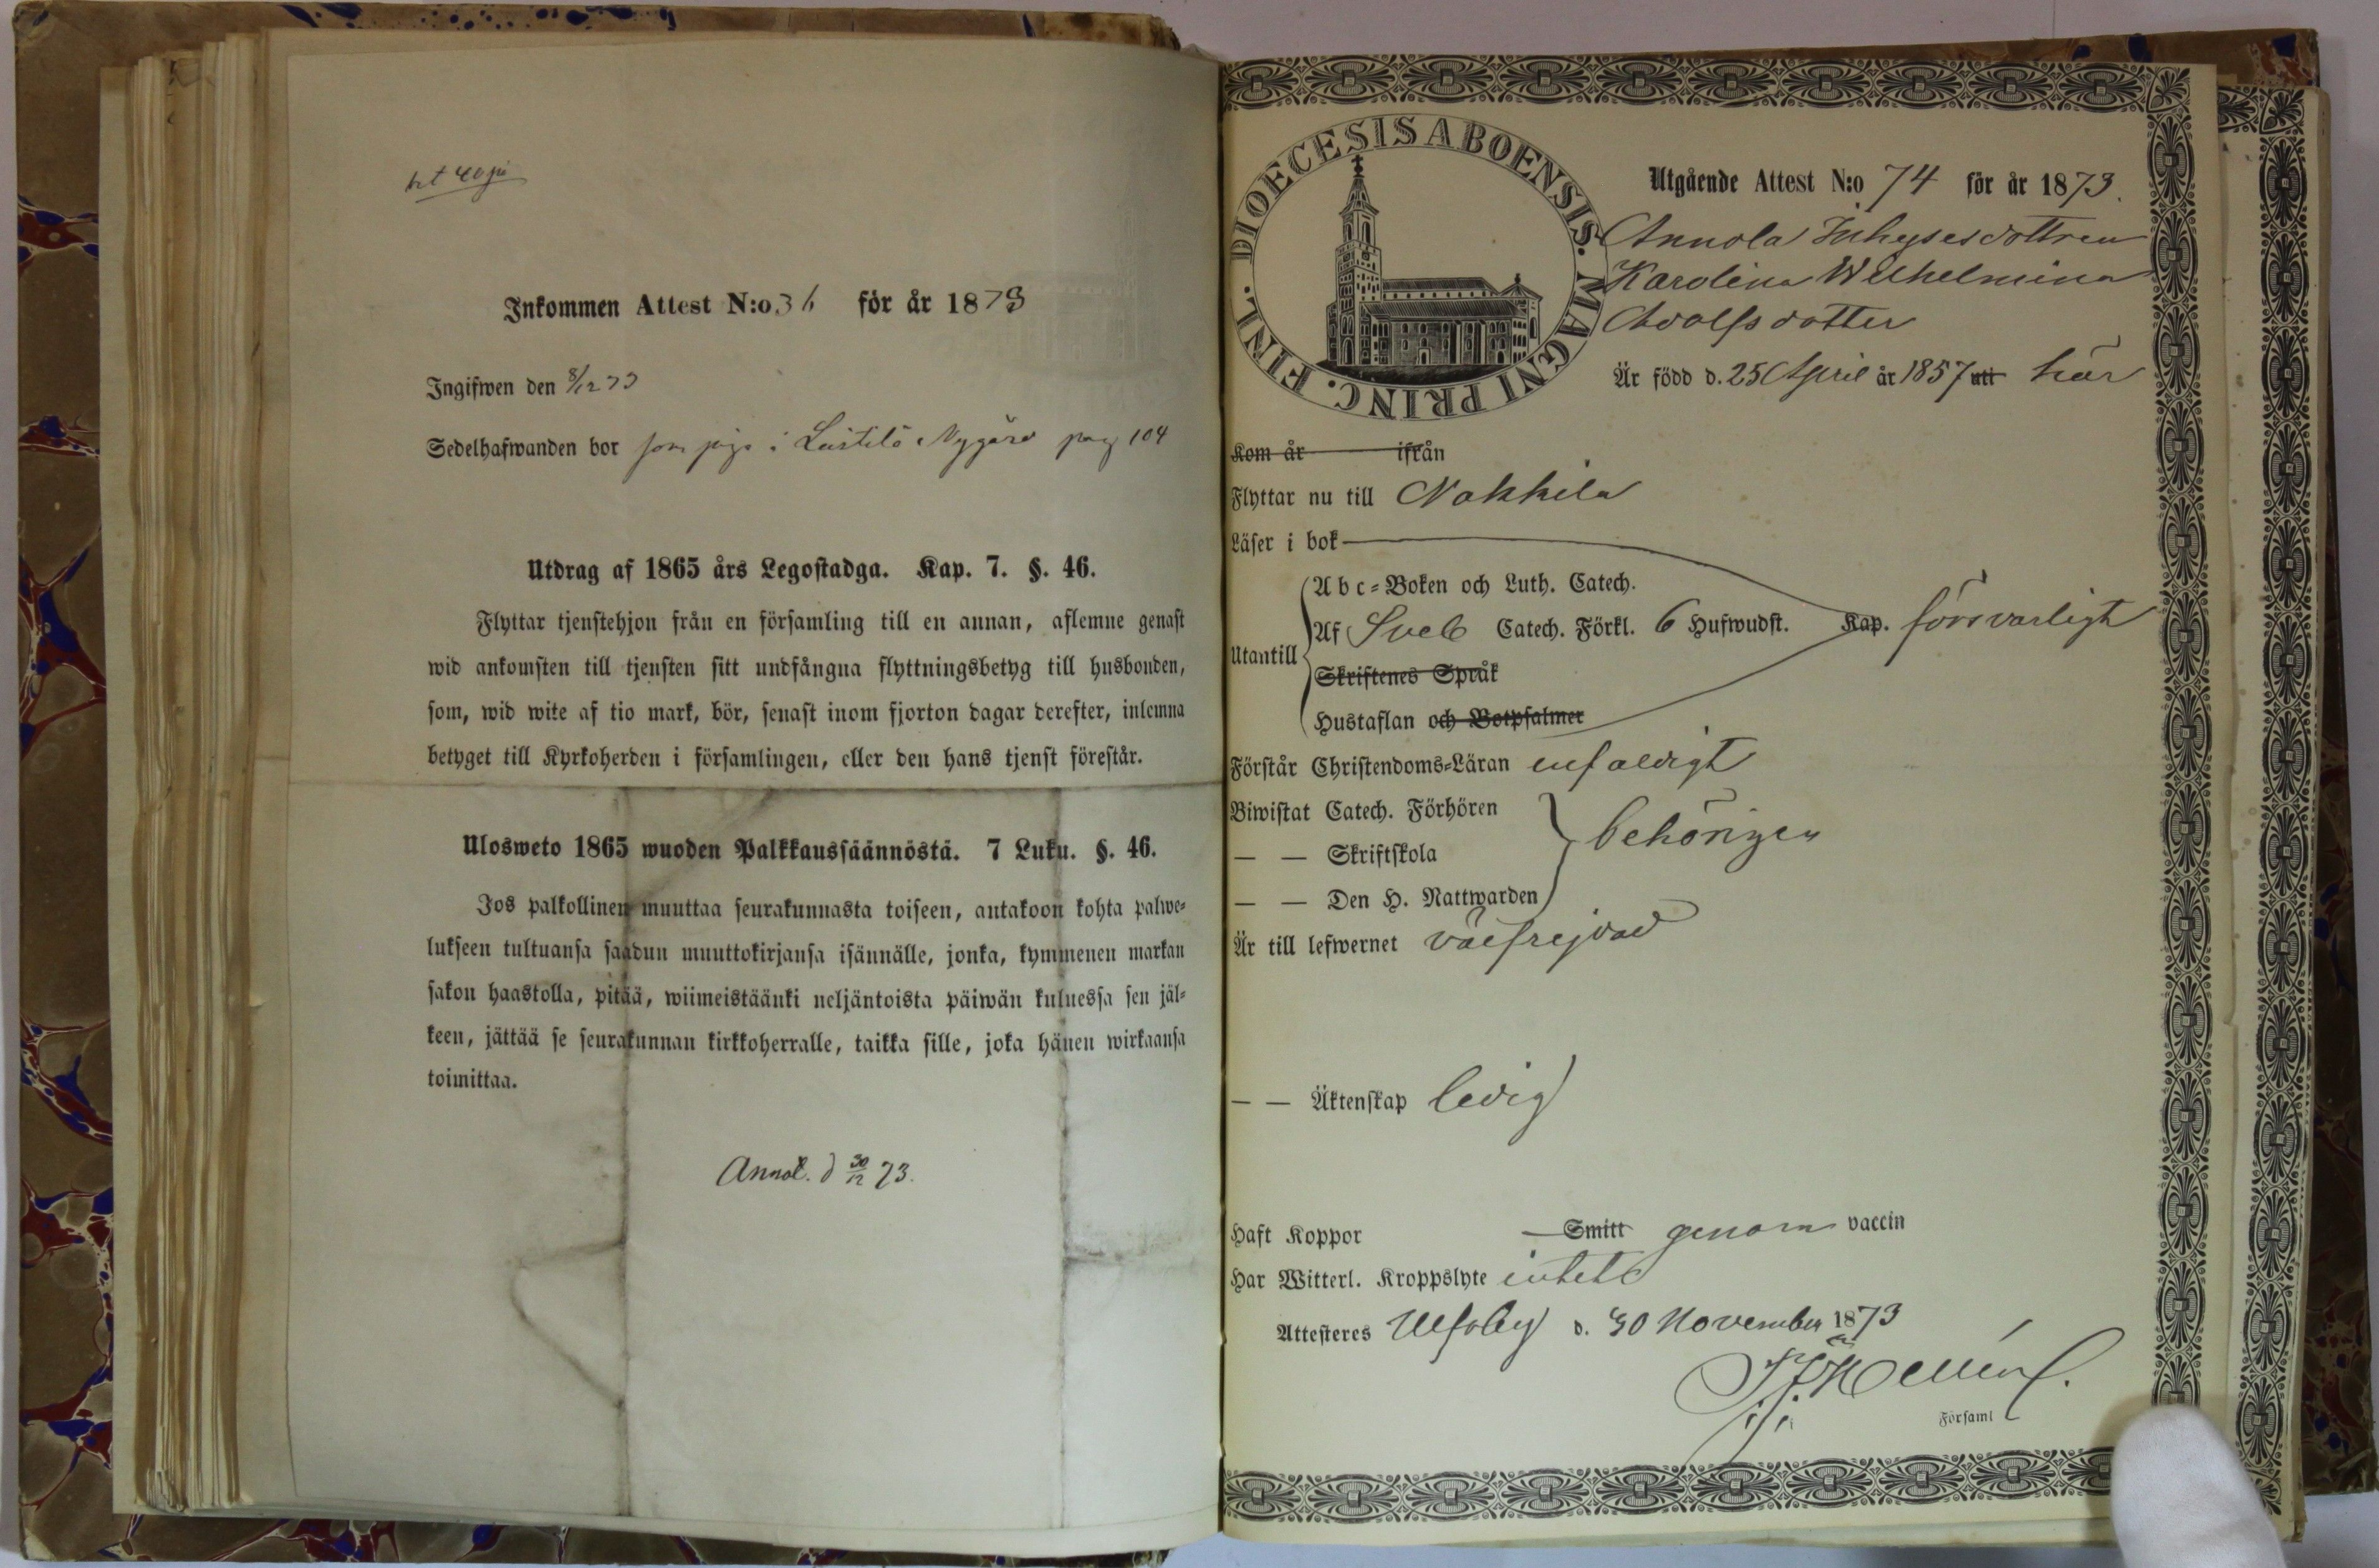 Inkommen Attest N:o 36 för år 1873
Ingifwen den 8/12 73
Sedelhafwanden bor som piga i Leistilä Nygård pag 104
Utdrag af 1865 års Legostadga. Kap. 7. §. 46.
Flyttar tjenstehjon från en församling till en annan, aflemne genast
wid ankomsten till tjensten sitt undfångna flyttningsbetyg till husbonden,
som, wid wite af tio mark, bör, senast inom fjorton dagar derefter, inlemna
betyget till Kyrkoherden i församlingen, eller den hans tjenst förestår.
Ulosweto 1865 wuoden Palkkaussäännöstä. 7 Luku. §. 46.
Jos palkollinen muuttaa seurakunnasta toiseen, antakoon kohta palwe-
lukseen tultuansa saadun muuttokirjansa isännälle, jonka, kymmenen markan
sakon haastolla, pitää, wiimeistäänki neljäntoista päiwän kuluessa sen jäl-
keen, jättää se seurakunnan kirkkoherralle, taikka sille, joka hänen wirkaansa
toimittaa.
Annot. d 30/12 73.
DIOECESIS ABOENSIS. MAGNI PRINC. FINL.
Utgående Attest N:o 74 för år 1873.
Annola Inhysesdottren
Karolina Wilhelmina
Adolfsdotter
Är född d. 25 April år 1857 utt här
Kom år ifrån
Flyttar nu till Nakkila
Läser i bok
Utantill
Abc-Boken och Luth. Catech.
Af Sveb Catech. Förkl. 6 Hufwudst. Kap. försvarligt
Skriftenes Språk
Hustaflan och Botpsalmer
Förstår Christendoms-Läran enfaldigt
Biwistat Catech. Förhören
— — Skriftskola behörigen
— — Den H. Nattwarden
Är till lefwernet välfrejdad
— — Äktenskap ledig
Haft Koppor Smitt genom vaccin
Har Witterl. Kroppslyte intet
Attesteres Ulfsby d. 30 November 1873
Församl